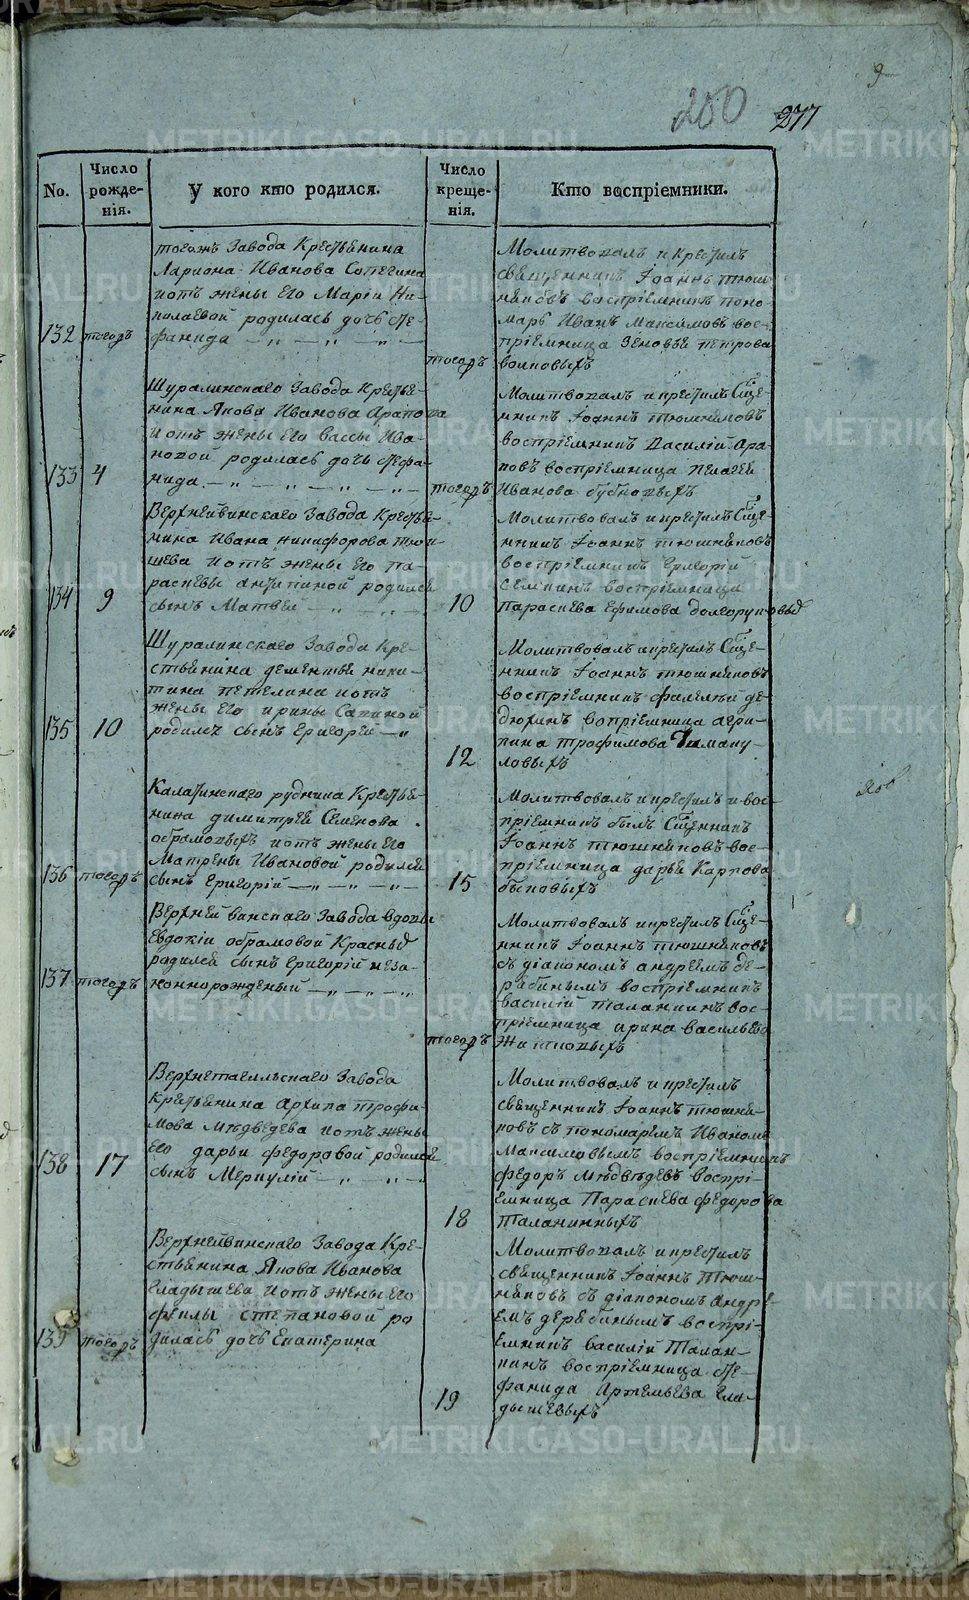 9
200 277
No.
Число рожде- нія.
У кого кто родился.
Число креще- нія.
Кто воспріемники.
тогожъ Завода Крестьянина
Лариона Иванова Сотегина
и отъ жены Его Маріи Ни-
колаевой родилась дочь Сте-
132 тогожъ фанида
тогожъ
Молитвовалъ и крестилъ
священникъ Іоаннъ тюш-
няковъ воспріемникъ поно-
марь Иванъ Максимовъ вос-
пріемница Зеновья петрова
волковыхъ
Шуралинскаго Завода Крестья-
нина Якова Иванова Арапова
и отъ жены Его вассы Ива-
новой родилась дочь Стефа-
133 4 нида
тогожъ
Молитвовалъ и крестилъ Сщен-
никъ Іоаннъ тюшняковъ
воспріемникъ Василій Ара-
повъ воспріемница пелагея
Иванова бубновыхъ
Верхнейвинскаго Завода Крестья-
нина Ивана никифорова
и отъ жены Его па-
раскевы антипиной родился
134 9 сынъ Матвей
10
Молитвовалъ и крестилъ Сщен-
никъ Іоаннъ тюшняковъ
воспріемникъ Григорій
воспріемница
параскева Ефимова долгоруковыхъ
Шуралинскаго Завода Кре-
стьянина дементья ники-
тина петелина и отъ
жены Его ирины Савиной
135 10 родился сынъ Григорей
12
Молитвовалъ и крестилъ Сщен-
никъ Іоаннъ тюшняковъ
воспріемникъ фалелей де-
дюхинъ вопріемница агри-
пина трофимова
ловыхъ
Калатинскаго рудника Крестья-
нина димитрея Семенова
обрамовыхъ и отъ жены Его
Матрены Ивановой родился
136 тогожъ сынъ Григорій
15
Молитвовалъ и крестилъ и вос-
пріемникъ былъ Сщенникъ
Іоаннъ тюшняковъ вос-
пріемница дарья Карпова
быковыхъ
Верхнейвинскаго Завода вдовы
Евдокіи обрамовой Красныхъ
родился сынъ Григорій неза-
137 тогожъ коннорожденый
тогожъ
Молитвовалъ и крестилъ Сщен-
никъ Іоаннъ тюшняковъ
съ діакономъ андреемъ де-
рябинымъ воспріемникъ
василій таланкинъ вос-
пріемница ирина васильева
Верхнетагильскаго Завода
Крестьянина Архипа трофи-
мова Медведева и отъ жены
его дарьи федоровой родился
138 17 сынъ Меркулій
18
Молитвовалъ и крестилъ
священникъ Іоаннъ тюшня-
ковъ съ пономаремъ Иваномъ
Максимовымъ воспріемникъ
федоръ медведевъ воспрі-
емница Параскева федорова
таланкиныхъ
Верхнейвинскаго Завода Кре-
стьянина Якова Иванова
гладышева и отъ жены Его
феклы степановой ро
139 тогожъ дилась дочь Екатерина
19
Молитвовалъ и крестилъ
священникъ Іоаннъ Тюш-
няковъ съ діакономъ андре-
емъ дерябинымъ воспрі-
емникъ василій талан-
кинъ воспріемница сте-
фанида Артемьева гла-
дышевыхъ
METRIKI.GASO-URAL.RU